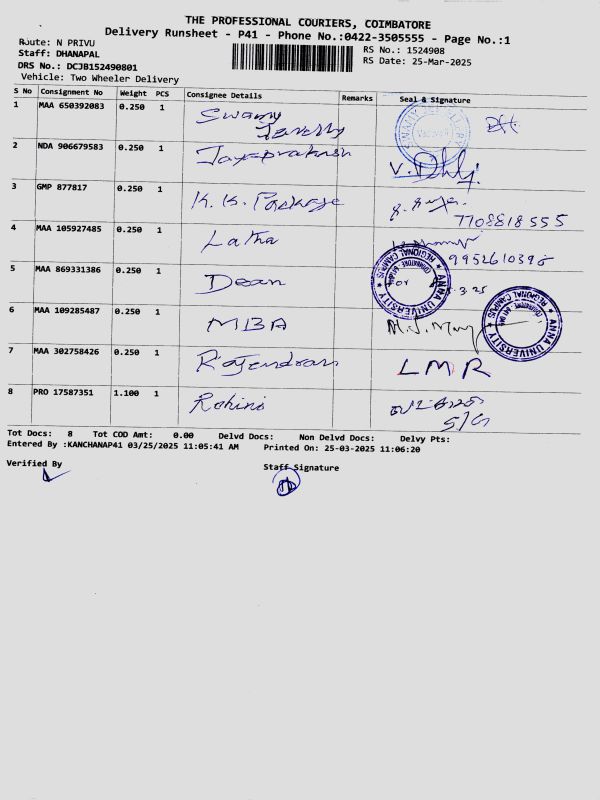 THE PROFESSIONAL COURIERS, COIMBATORE
Delivery Runsheet - P41 - Phone No.:0422-3505555 - Page No.:1
Route: N PRIVU
RS No.: 1524908
Staff: DHANAPAL
RS Date: 25-Mar-2025
DRS No.: DCJB152490801
Vehicle: Two Wheeler Delivery
S No Consignment No Weight PCS Consignee Details Remarks Seal & Signature
1 MAA 650392083 0.250 1 Swamy
2 NDA 906679583 0.250 1 Jayaprakash
3 GMP 877817 0.250 1 K.K. Package
7708818555
4 MAA 105927485 0.250 1 Latha
9952610398
5 MAA 869331386 0.250 1 Dean
ANNA UNIVERSITY
REGIONAL CAMPUS
6 MAA 109285487 0.250 1 MBA
ANNA UNIVERSITY
REGIONAL CAMPUS
7 MAA 302758426 0.250 1 Rajendran LMR
8 PRO 17587351 1.100 1 Rohini
Tot Docs: 8 Tot COD Amt: 0.00 Delvd Docs: Non Delvd Docs: Delvy Pts:
Entered By :KANCHANAP41 03/25/2025 11:05:41 AM Printed On: 25-03-2025 11:06:20
Verified By Staff Signature